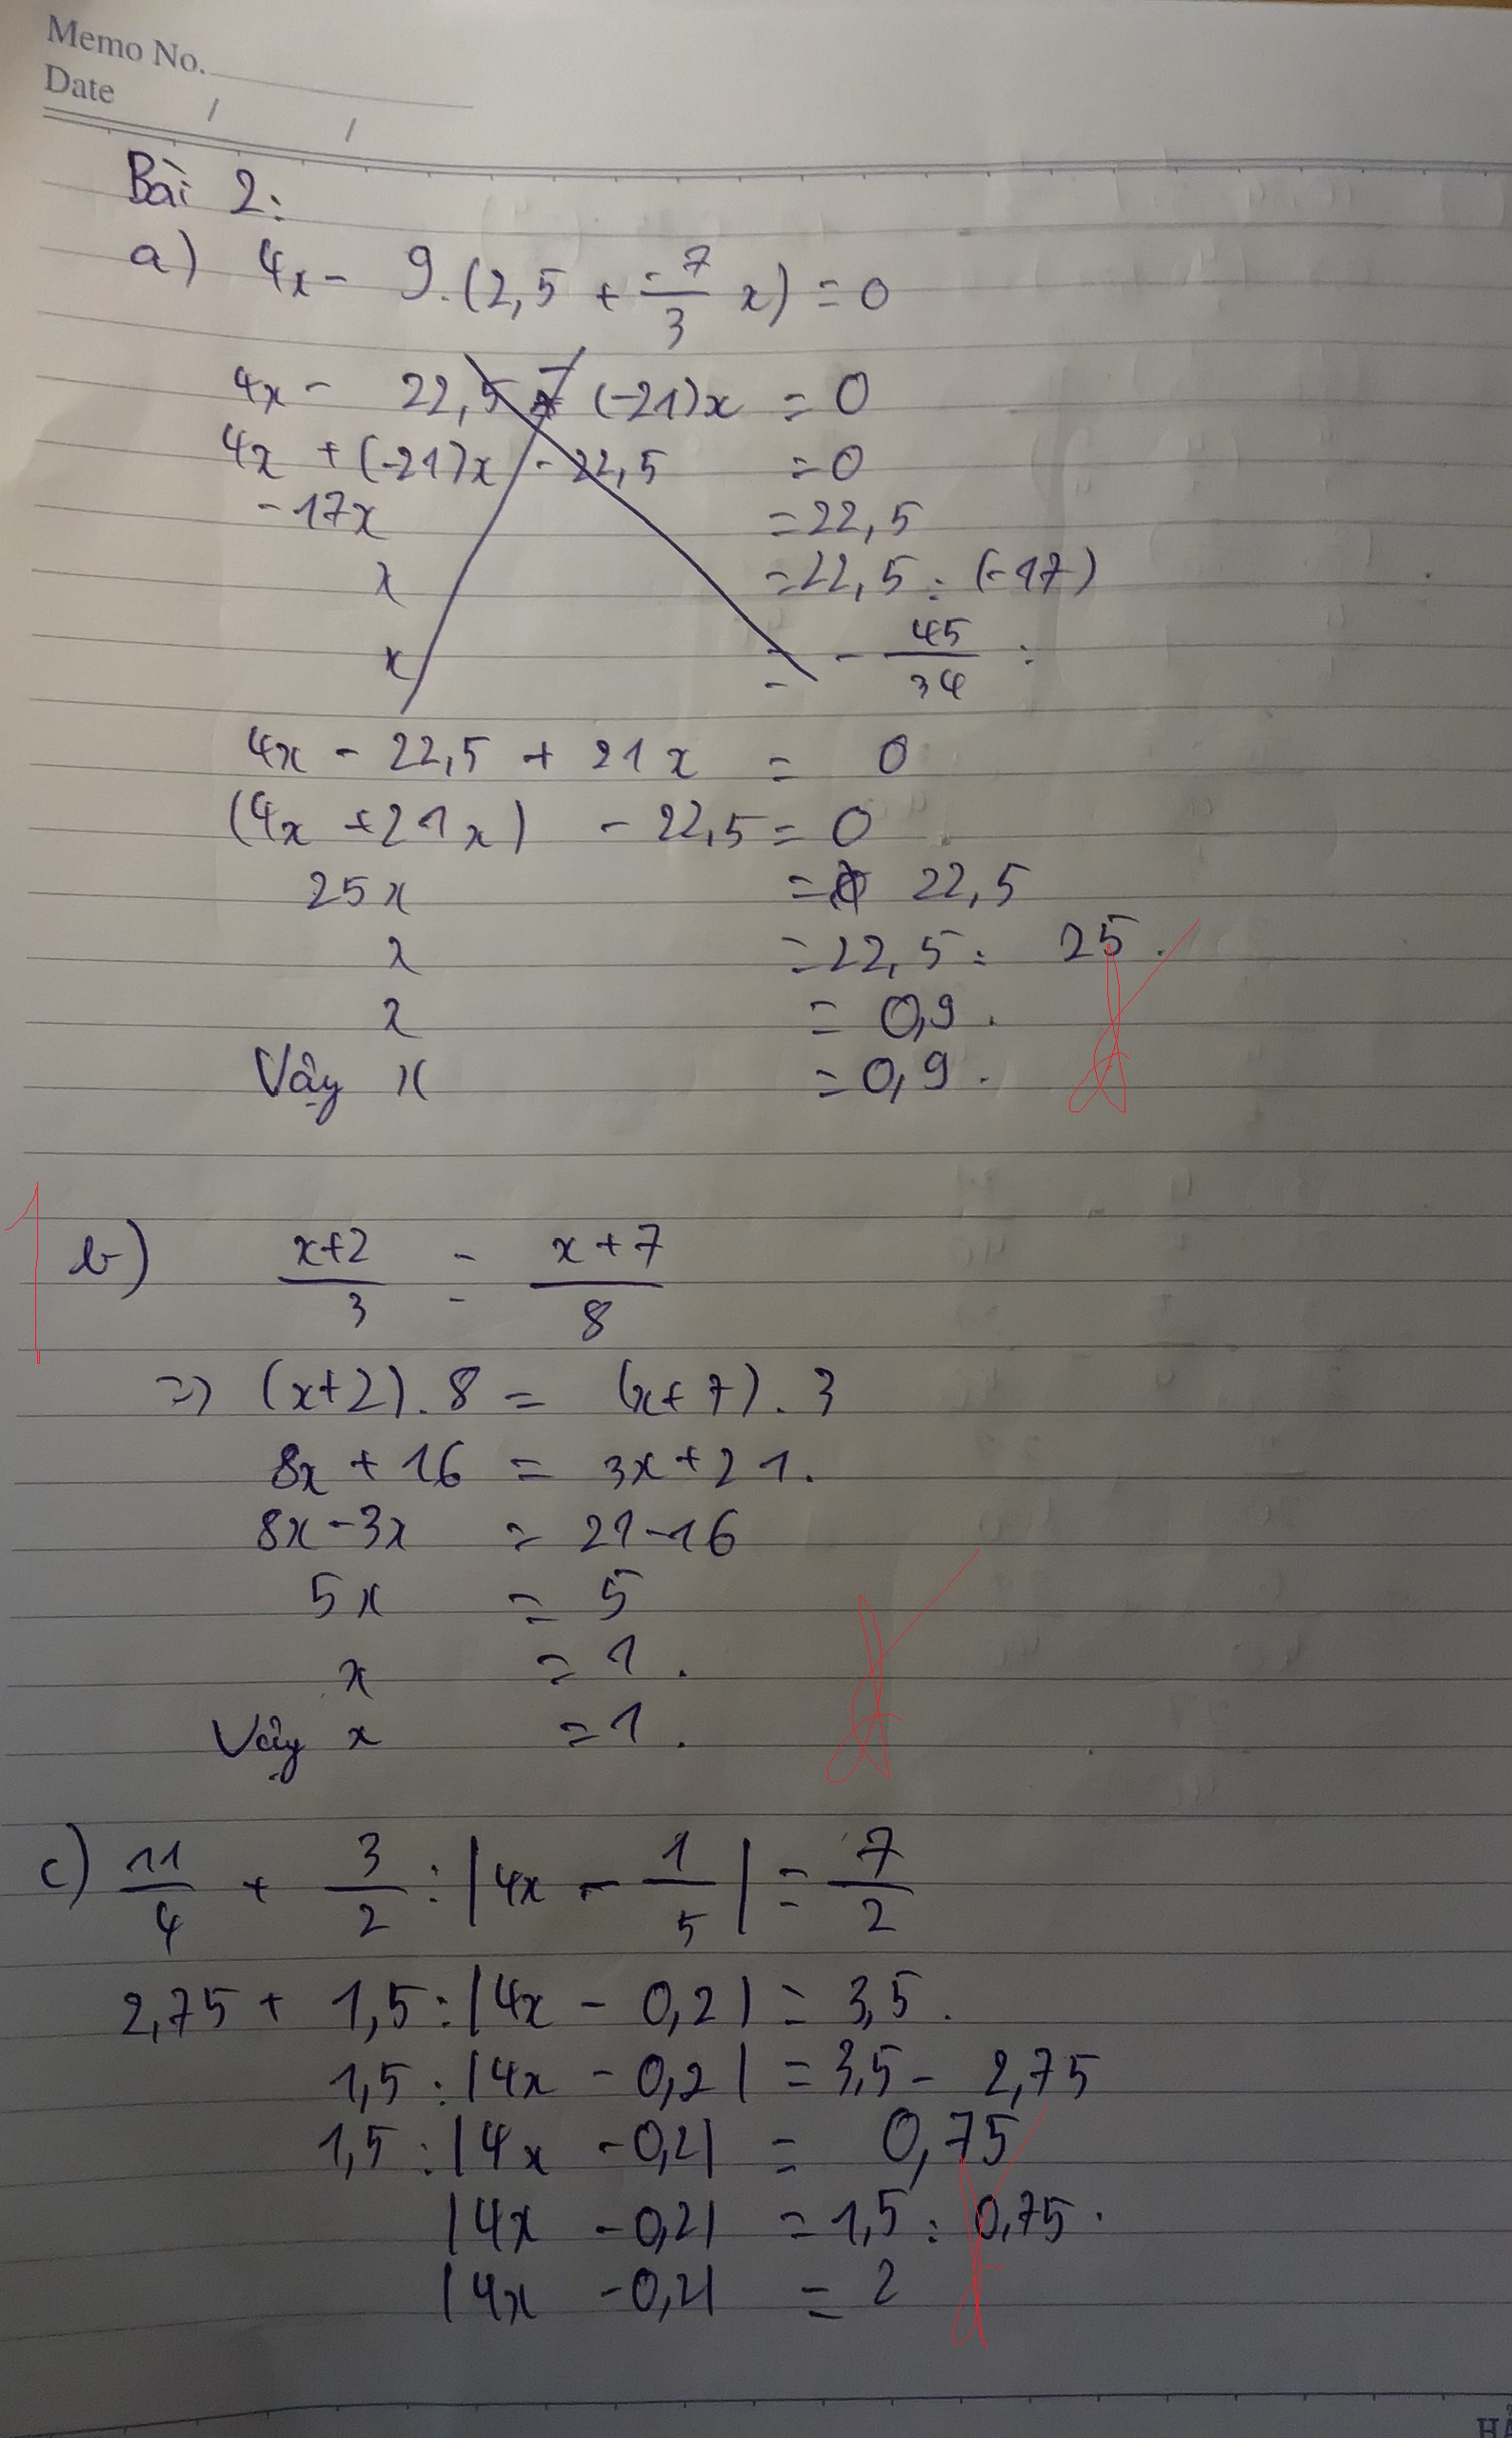 Memo No.
Date / /
Bài 2:
a) 4x - 9.(2,5 + \frac{-7}{3} x) = 0
4x - 22,5 - (-21)x = 0
4x + (-21)x - 22,5 = 0
-17x = 22,5
x = 22,5 : (-17)
x = - \frac{45}{34} :
4x - 22,5 + 21x = 0
(4x + 21x) - 22,5 = 0
25x = 22,5
x = 22,5 : 25.
x = 0,9.
Vậy x = 0,9.
1
b) \frac{x+2}{3} = \frac{x+7}{8}
=> (x+2).8 = (x+7).3
8x + 16 = 3x + 21.
8x - 3x = 21 - 16
5x = 5
x = 1.
Vậy x = 1.
c) \frac{11}{4} + \frac{3}{2} : |4x - \frac{1}{5}| = \frac{7}{2}
2,75 + 1,5 : |4x - 0,2| = 3,5.
1,5 : |4x - 0,2| = 3,5 - 2,75
1,5 : |4x - 0,2| = 0,75
|4x - 0,2| = 1,5 : 0,75.
|4x - 0,2| = 2